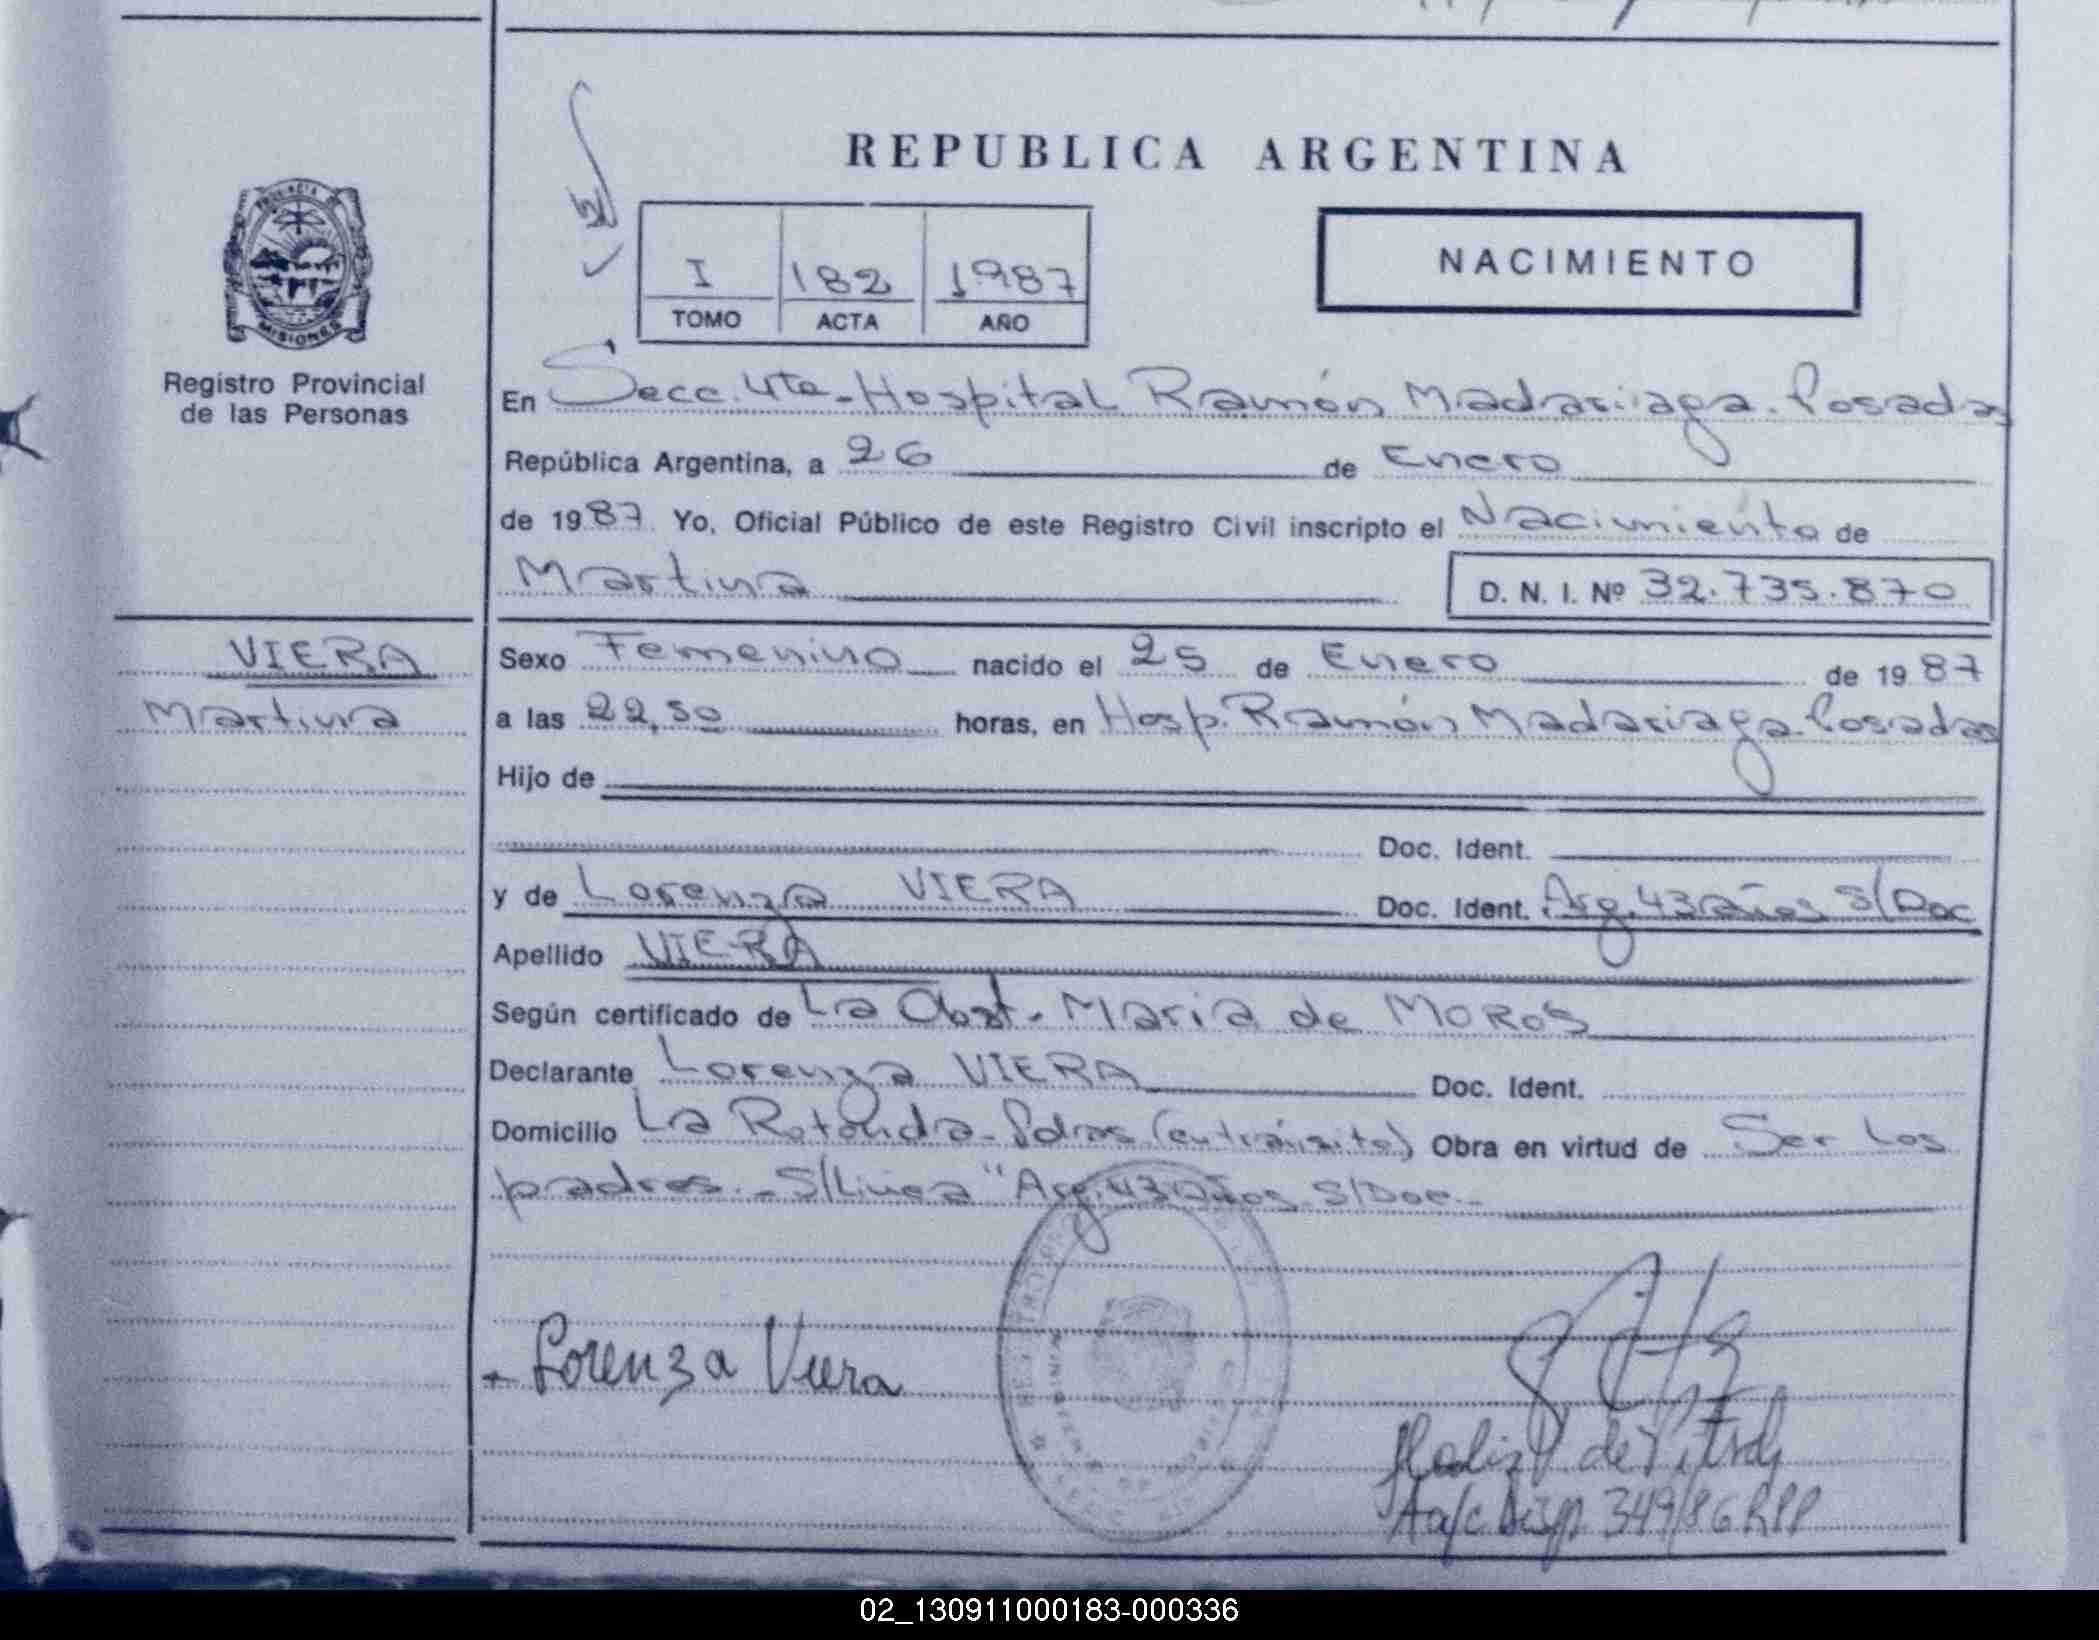 REPUBLICA ARGENTINA
PROVINCIA DE MISIONES
Registro Provincial
de las Personas
I 182 1987
TOMO ACTA AÑO
NACIMIENTO
En Secc. 4ta-Hospital Ramón Madariaga. Posadas
República Argentina, a 26 de Enero
de 1987 Yo, Oficial Público de este Registro Civil inscripto el Nacimiento de
Martina D. N. I. Nº 32.735.870
VIERA
Martina
Sexo Femenino nacido el 25 de Enero de 1987
a las 22,50 horas, en Hosp. Ramón Madariaga. Posadas
Hijo de
Doc. Ident.
y de Lorenza VIERA Doc. Ident. Arg. 43 años S/Doc
Apellido VIERA
Según certificado de La Obst. Maria de MOROS
Declarante Lorenza VIERA Doc. Ident.
Domicilio La Rotonda- Pdas (en tránsito) Obra en virtud de Ser los
padres.- S/Linea "Arg. 43 años S/Doc.-
Lorenza Viera
A a/c Disp 349/86 RPP
02_130911000183-000336